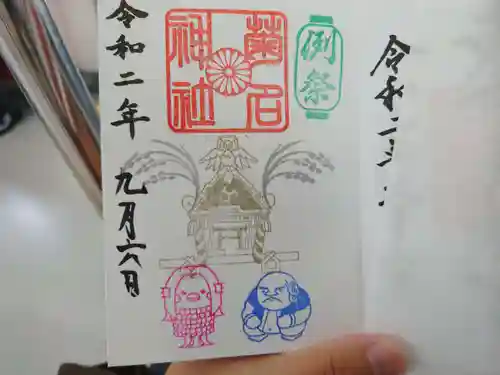 令和二
例祭
菊名
神社
令和二年 九月六日